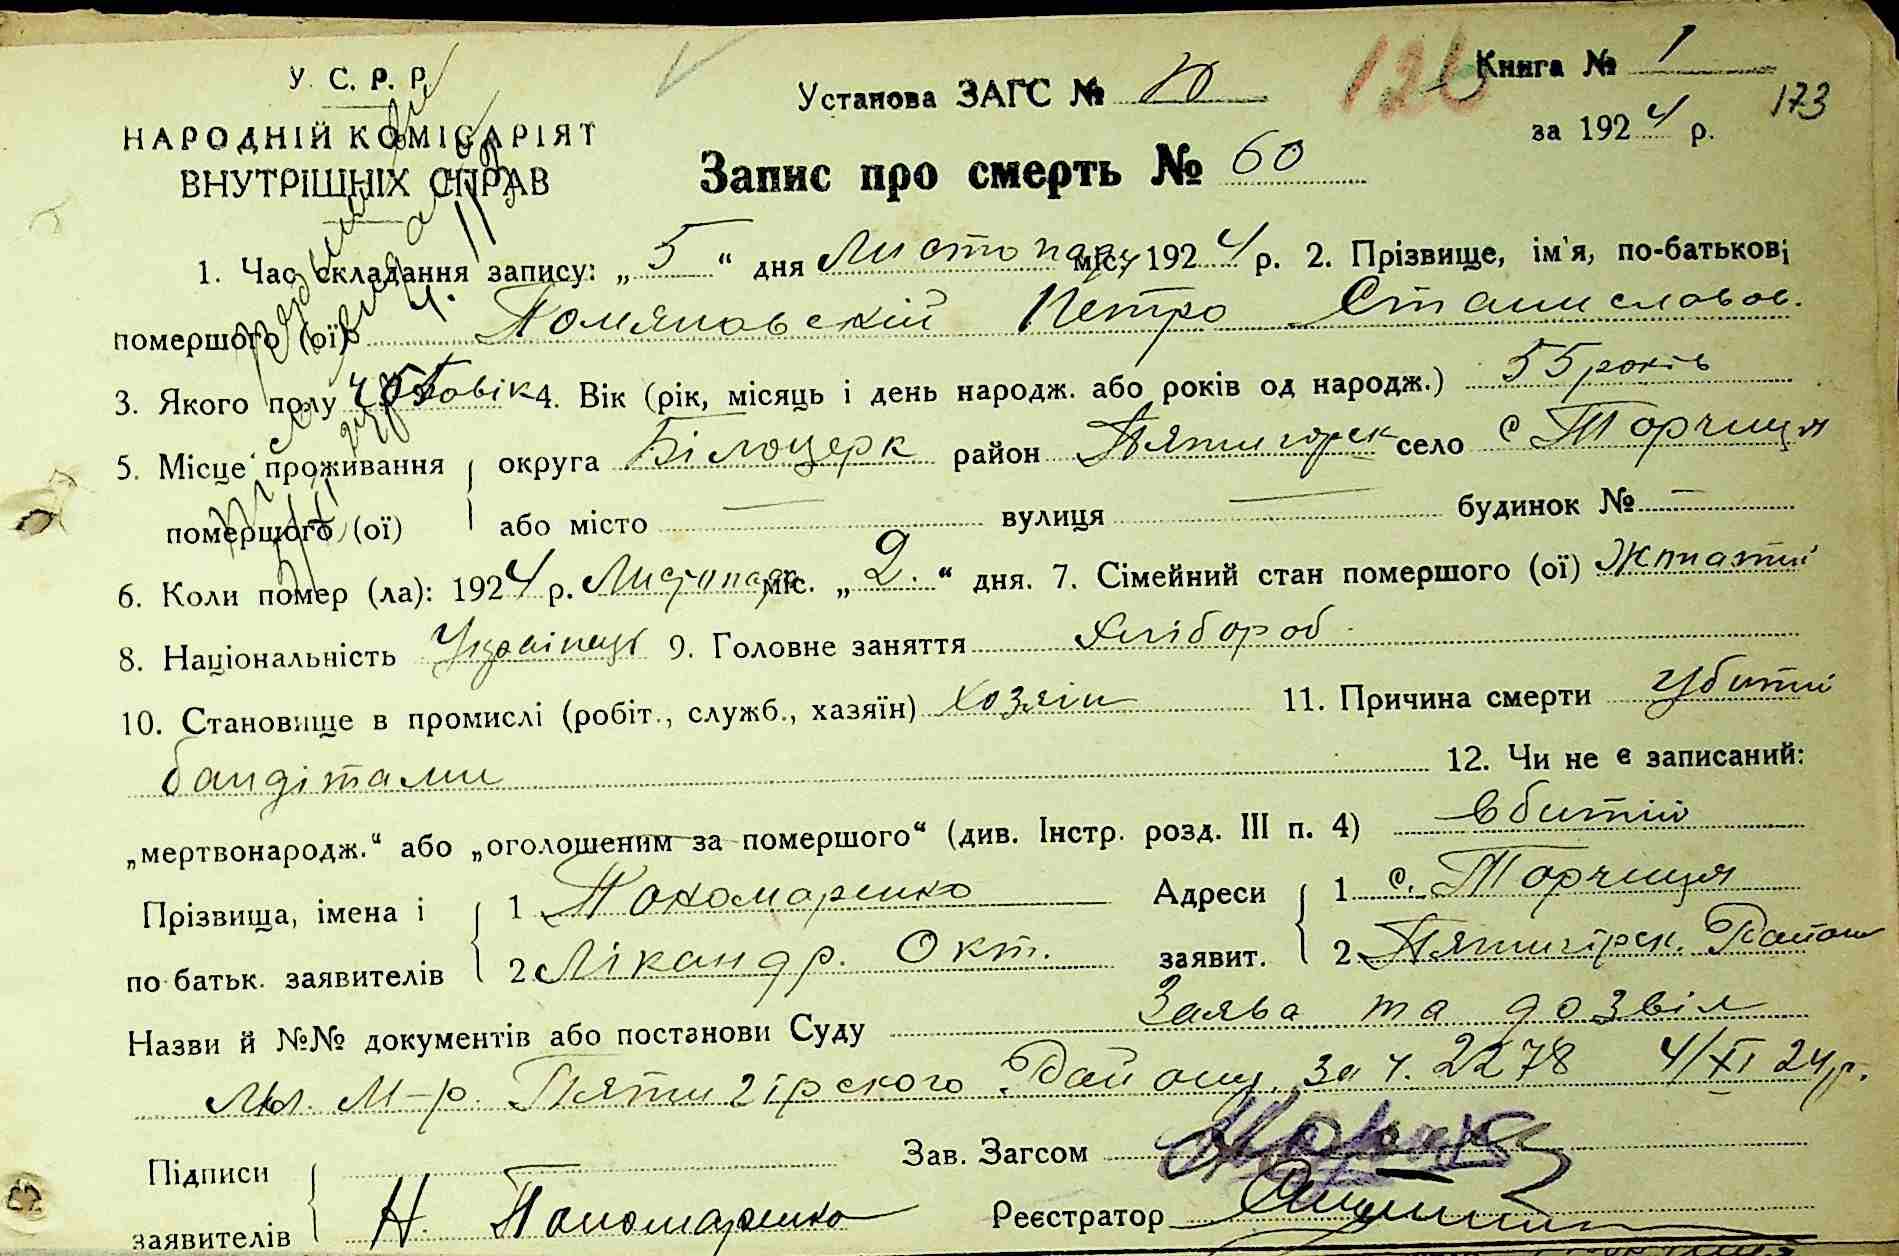 У. С. Р. Р.
Установа ЗАГС № 10
126
Книга № 1
173
НАРОДНІЙ КОМІСАРІЯТ
ВНУТРІШНІХ СПРАВ
за 1924 р.
Запис про смерть № 60
1. Час складання запису: „5“ дня Листопаду міс. 1924 р. 2. Прізвище, ім'я, по-батькові
помершого (ої) Помяновскій Петро Станиславов.
3. Якого полу чоловік 4. Вік (рік, місяць і день народж. або років од народж.) 55 років
5. Місце проживання округа Білоцерк район Пятигорск село с Торчиця
помершого (ої) або місто — вулиця — будинок № —
6. Коли помер (ла): 1924 р. Листопада міс. „2.“ дня. 7. Сімейний стан помершого (ої) Жинатий
8. Національність Українець 9. Головне заняття Хлібороб
10. Становище в промислі (робіт., служб., хазяїн) Хозяін 11. Причина смерти Убитий
бандітами 12. Чи не є записаний:
„мертвонародж.“ або „оголошеним за помершого“ (див. Інстр. розд. III п. 4) вбитій
Прізвища, імена і 1 Пономаренко Адреси 1 с. Торчиця
по-батьк. заявителів 2 Нікандр. Окт. заявит. 2 Пятигірск. Район
Назви й №№ документів або постанови Суду Заява та дозвіл
М-р. Пятигірского Району за ч. 2278 4/XI 24 р.
Підписи
Зав. Загсом
заявителів Н. Пономаренко Реєстратор